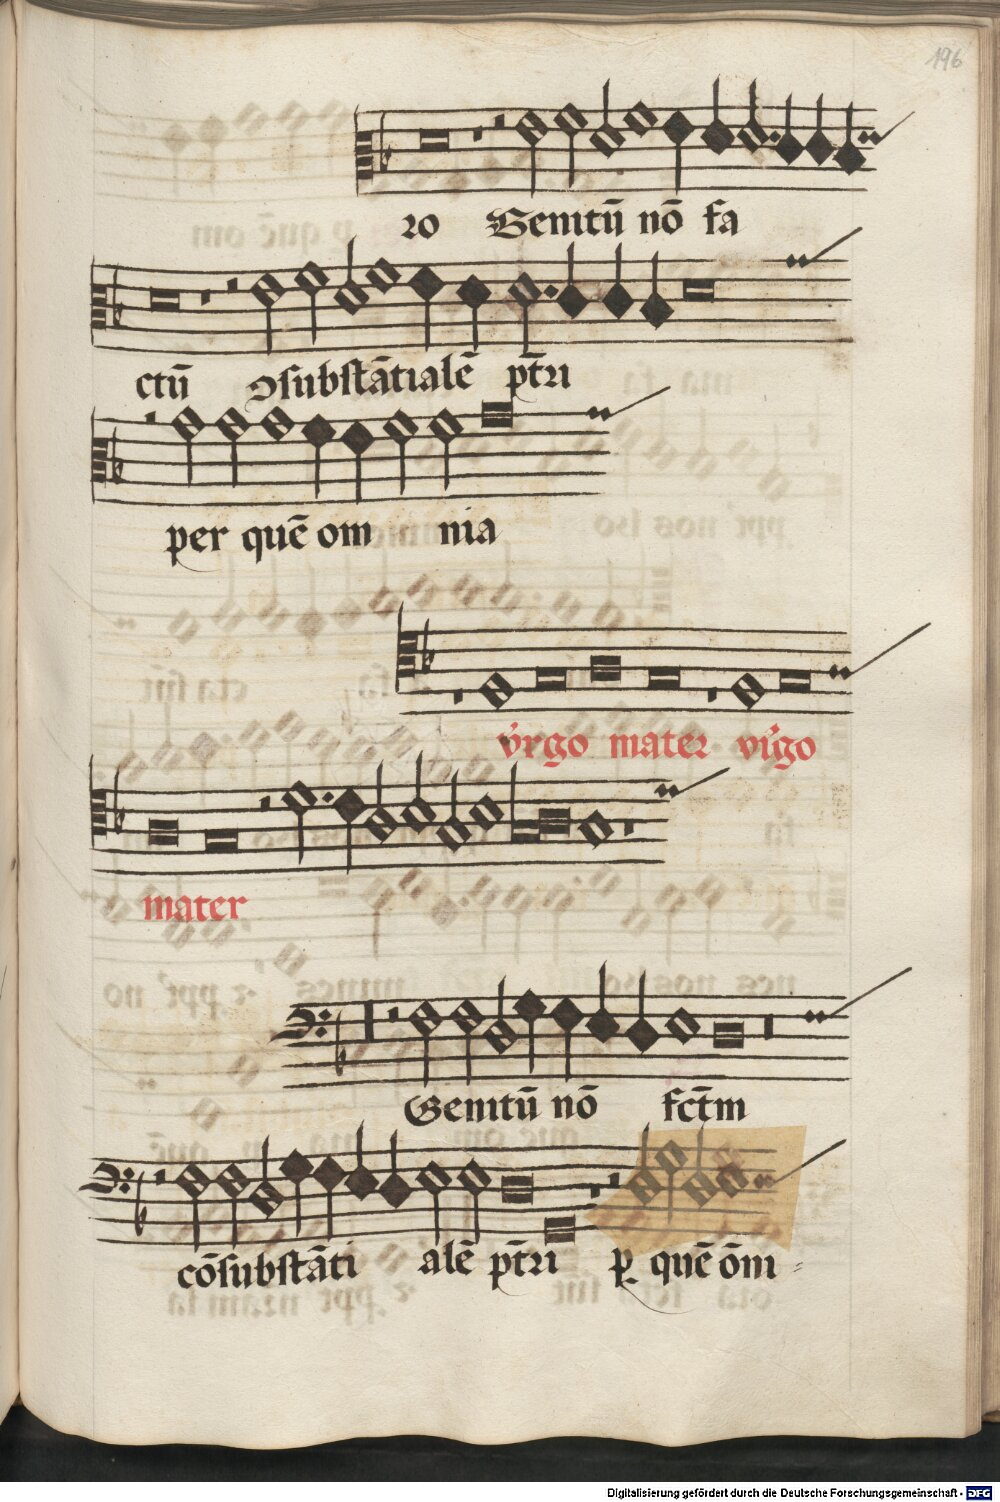 196
ro Genitū nō fa
ctū ɔsubstātialē pt̄ri
per quē om nia
v̓rgo mater vi̓go
mater
Genitū nō fct̄m
cōsubstāti alē pt̄ri ꝑ quē ōm
Digitalisierung gefördert durch die Deutsche Forschungsgemeinschaft - DFG